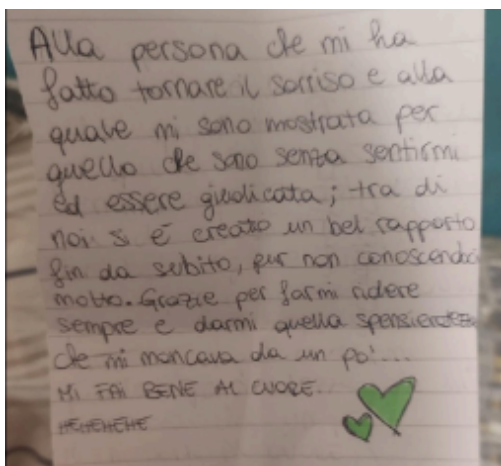 Alla persona che mi ha
fatto tornare il sorriso e alla
quale mi sono mostrata per
quello che sono senza sentirmi
ed essere giudicata; tra di
noi si è creato un bel rapporto
fin da subito, pur non conoscendoci
molto. Grazie per farmi ridere
sempre e darmi quella spensieratezza
che mi mancava da un po'...
MI FAI BENE AL CUORE...
HEHEHEHE